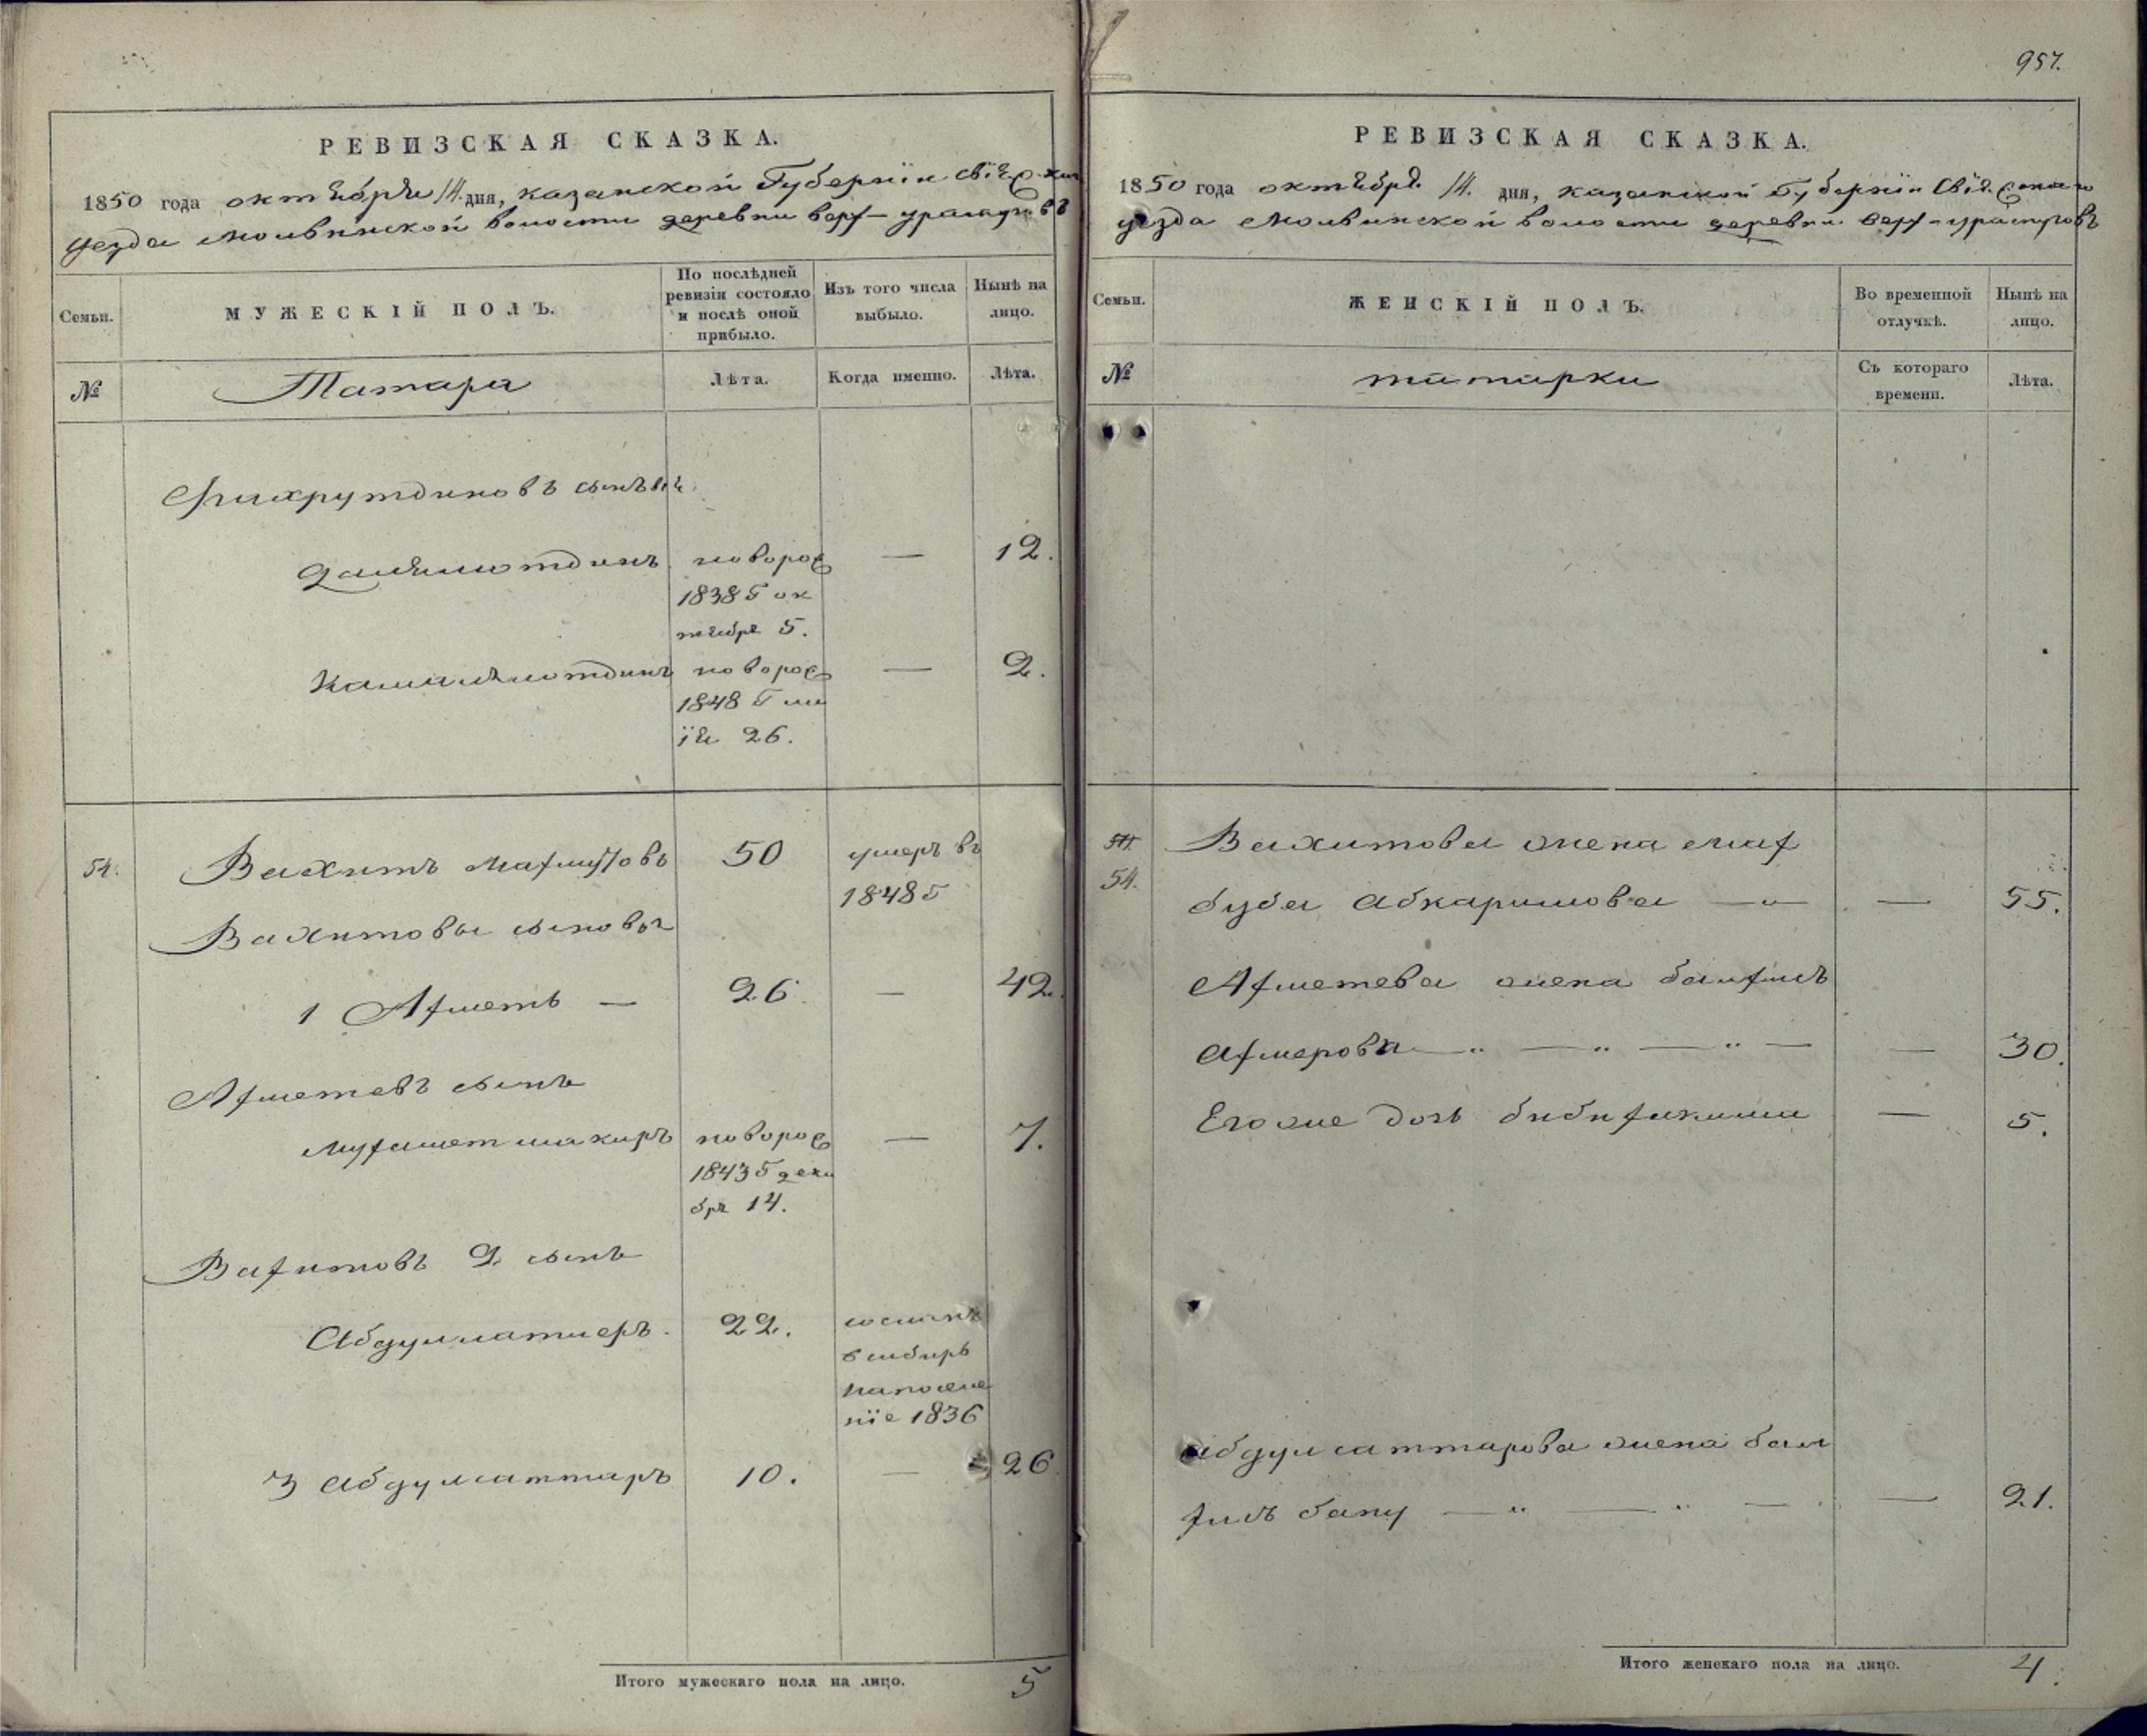 957.
РЕВИЗСКАЯ СКАЗКА.
1850 года октября 14. дня, казанской Губернїи свiя
уезда молвинской волости деревни верх-ураспуговъ
Семьи.
МУЖЕСКІЙ ПОЛЪ.
По послѣдней
ревизіи состояло
и послѣ оной
прибыло.
Изъ того числа
выбыло.
Нынѣ на
лицо.
№
Татара
Лѣта.
Когда именно.
Лѣта.
Фахрутдиновъ сыновья
Замалютдинъ новорож — 12.
1838 Г ок
тября 5.
Камалютдинъ новорож — 2.
1848 Г ма
їя 26.
54. Вахитъ Махмутовъ 50 умеръ въ
1848 Г
Вахитовы сыновья
1 Ахметъ — 26. — 42.
Ахметевъ сынъ
мухаметшакиръ новорож — 7.
1843 Г дека
бря 14.
Вахитовъ 2. сынъ
22. сосланъ
в сибирь
на поселе
нїе 1836
3 абдулсаттаръ 10. — 26
Итого мужескаго пола на лицо. 5
РЕВИЗСКАЯ СКАЗКА.
1850 года октября 14. дня, казанской Губернїи Свiя
уезда Молвинской волости деревни верх-ураспуговъ
Семьи.
ЖЕНСКІЙ ПОЛЪ.
Во временной
отлучкѣ.
Нынѣ на
лицо.
№
татарки
Съ котораго
времени.
Лѣта.
Вахитова жена мах
54. буба абкаримова — „ — — 55.
Ахметева жена
ахмерова — „ — „ — „ — — 30.
Его же дочь — 5.
абдулсаттарова жена
бану — „ — „ — — 21.
Итого женскаго пола на лицо. 4.